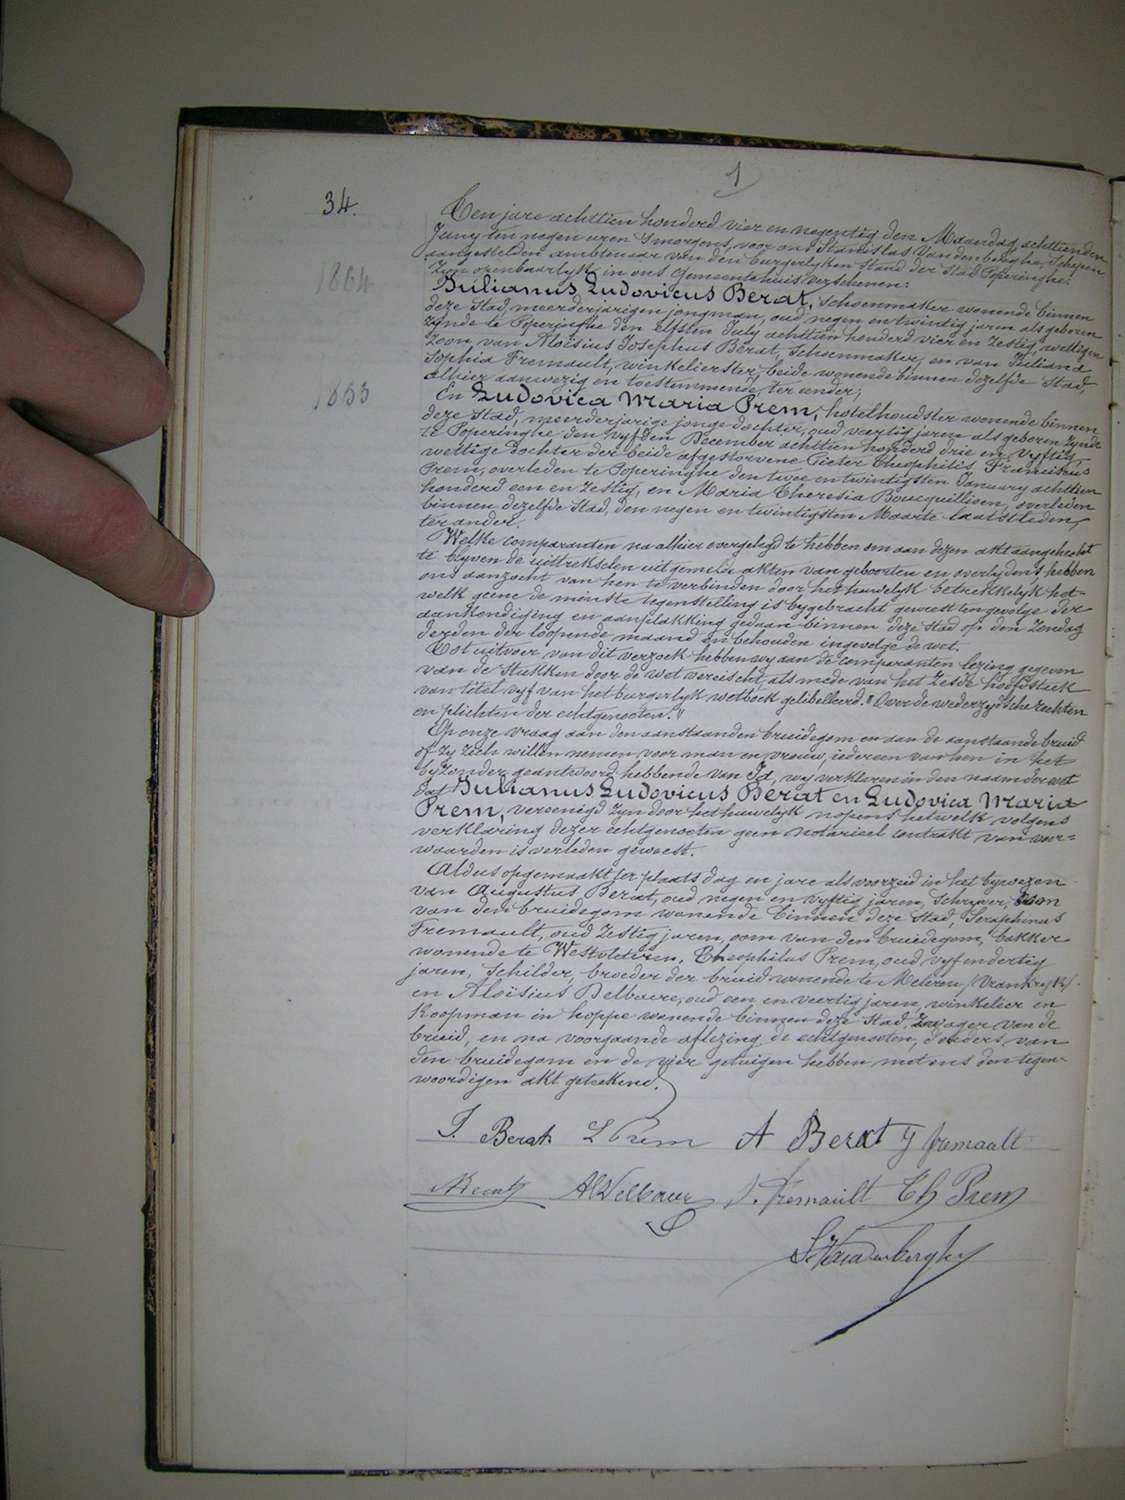 1
34.
Ten jare achttien honderd vier en negentig den Maandag achttienden
Juny ten negen uren 's morgens, voor ons Stanislas Vandenberghe, Schepen
aangestelden ambtenaar van den burgerlyken Stand der Stad Poperinghe,
zyn openbaarlyk in ons Gemeentehuis verschenen:
1864
Julianus Ludovicus Berat, schoenmaker wonende binnen
deze Stad, meerderjarigen jongman, oud negen en twintig jaren als geboren
zynde te Poperinghe den elfsten July achttien honderd vier en zestig, wettigen
zoon van Aloïsius Josephus Berat, Schoenmaker, en van Juliana
Sophia Fremault, winkelierster, beide wonende binnen dezelfde Stad,
alhier aanwezig en toestemmende, ter eender;
1853
En Ludovica Maria Prem, hotelhoudster wonende binnen
deze Stad, meerderjarige jonge dochter, oud veertig jaren als geboren zynde
te Poperinghe den vyfden December achttien honderd drie en vyftig,
wettige dochter der beide afgestorvene Pieter Theophilis Franciscus
Prem, overleden te Poperinghe den twee en twintigsten January achttien
honderd een en zestig, en Maria Theresia Boucquillioen, overleden
binnen dezelfde Stad, den negen en twintigsten Maarte laatstleden,
ter ander.
Welke comparanten na alhier overgelegd te hebben om aan dezen akt aangehecht
te blyven de uittrekselen uitgemelde akten van geboorten en overlydens, hebben
ons aanzocht van hen te verbinden door het huwelyk betrekkelyk het-
welk geene de minste tegenstelling is bygebracht geweest tengevolge der
aankondiging en aanplakking gedaan binnen deze Stad op den Zondag
derden der loopende maand en behouden ingevolge de wet.
Tot uitvoer van dit verzoek hebben wy aan de comparanten lezing gegeven
van de Stukken door de wet vereischt, als mede van het zesde hoofdstuk
van titel vyf van het burgerlyk wetboek gelibelleerd "Over de wederzydsche rechten
en plichten der echtgenooten."
Op onze vraag aan den aanstaanden bruidegom en aan de aanstaande bruid
of zy zich willen nemen voor man en vrouw, iedereen van hen in het
byzonder geantwoord hebbende van Ja, wy verklaren in den naam der wet
dat Julianus Ludovicus Berat en Ludovica Maria
Prem, vereenigd zyn door het huwelyk nopens hetwelk volgens
verklaring dezer echtgenooten geen notarieel contrakt van voor=
waarden is verleden geweest.
Aldus opgemaakt ter plaats dag en jare als voorzeid in het bywezen
van Augustus Berat, oud negen en vyftig jaren, Schryver, oom
van den bruidegom wonende binnen deze Stad, Seraphinus
Fremault, oud zestig jaren, oom van den bruidegom, bakker
wonende te Westvleteren, Theophilus Prem, oud vyf en dertig
jaren, Schilder, broeder der bruid wonende te Meteren (Vrankryk)
en Aloïsius Delbaere, oud een en veertig jaren, winkelier en
Koopman in hoppe wonende binnen deze Stad, zwager van de
bruid, en na voorgaande aflezing de echtgenooten, d'ouders van
den bruidegom en de vier getuigen hebben met ons den tegen-
woordigen akt geteekend.
J. Berat L Prem A Berat J fremault
A Berat Al Delbaere S. fremault Th Prem
St Vandenberghe